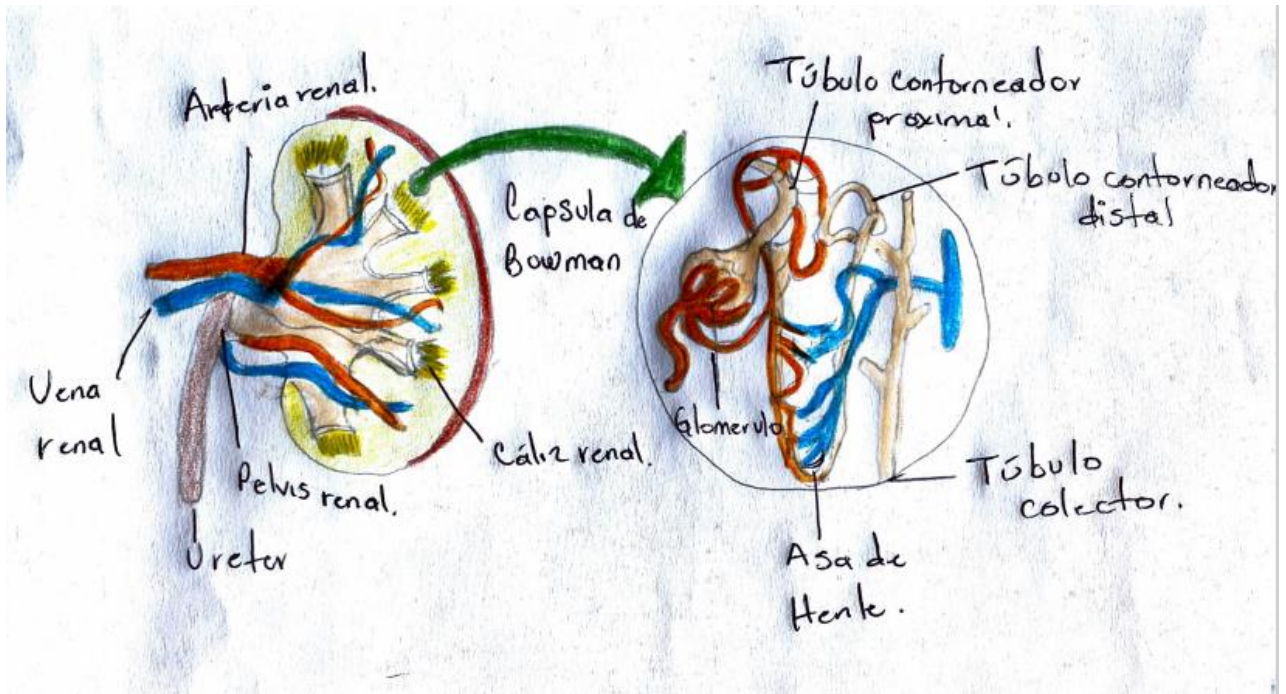 Arteria renal.
Vena
renal
Ureter
Pelvis renal.
Cáliz renal.
Capsula de
Bowman
Túbulo contorneador
proximal.
Túbulo contorneador
distal
Glomerulo
Túbulo
colector.
Asa de
Henle.